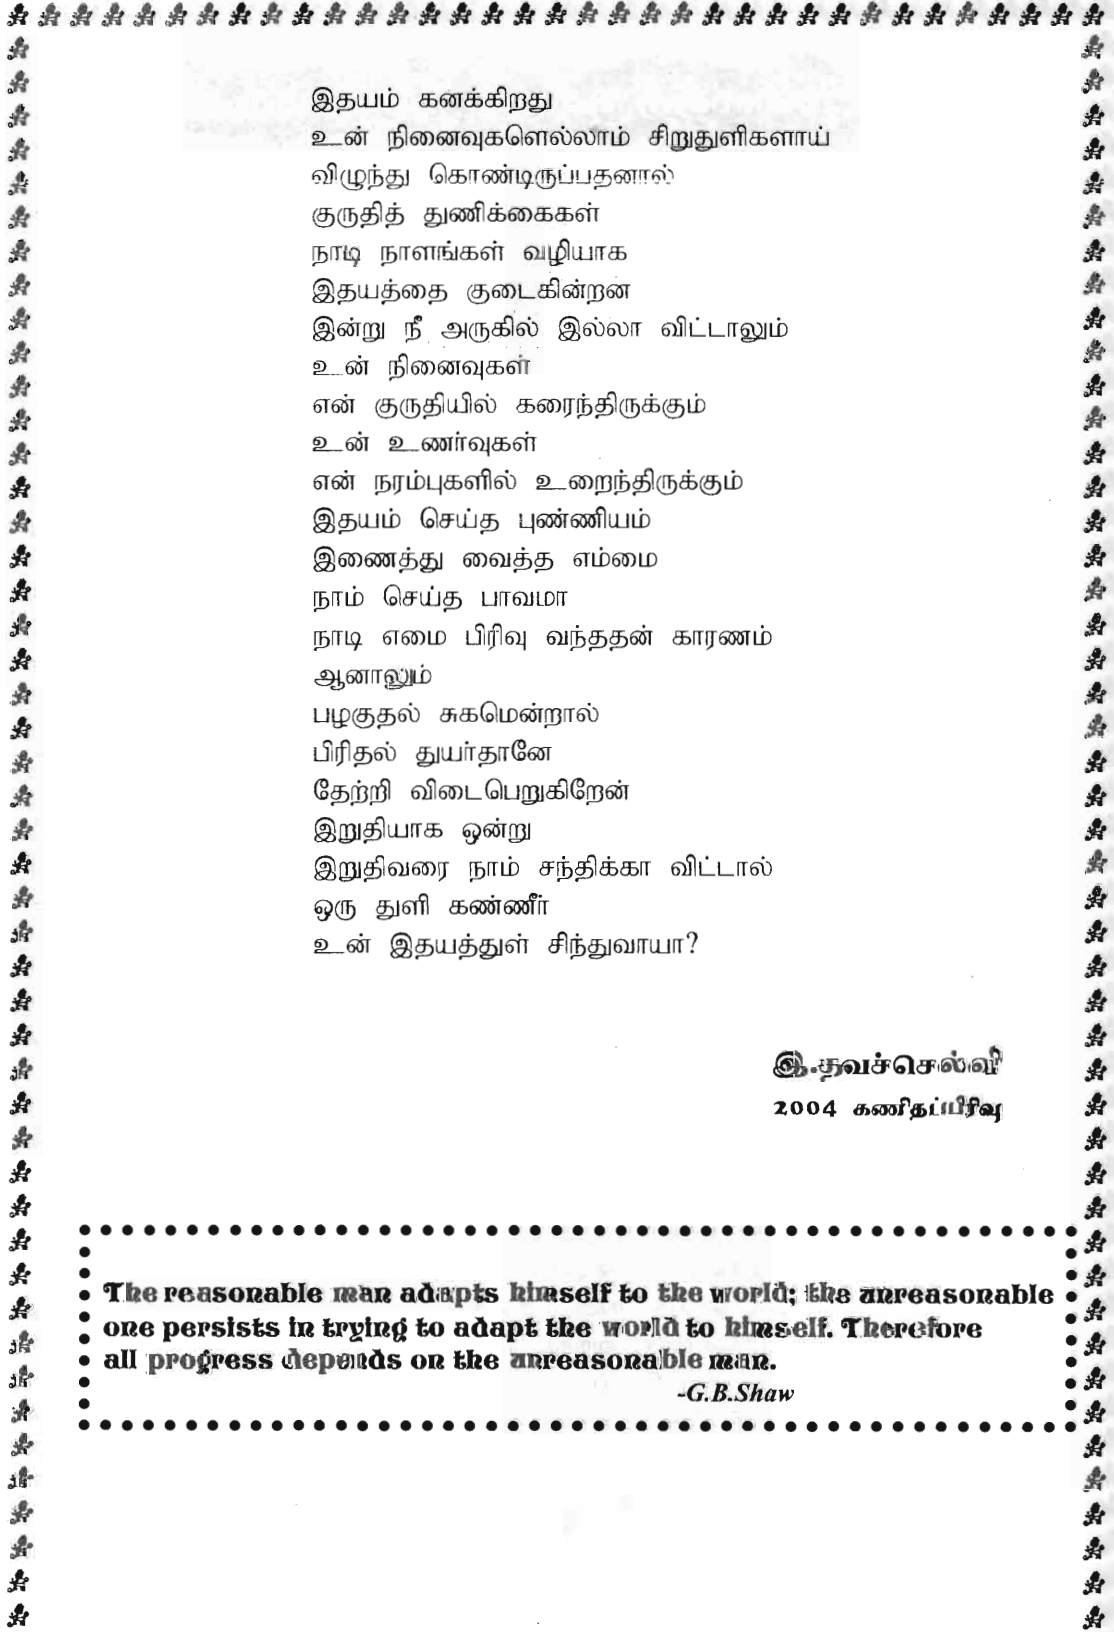 இதயம் கனக்கிறது
உன் நினைவுகளெல்லாம் சிறுதுளிகளாய்
விழுந்து கொண்டிருப்பதனால்
குருதித் துணிக்கைகள்
நாடி நாளங்கள் வழியாக
இதயத்தை குடைகின்றன
இன்று நீ அருகில் இல்லா விட்டாலும்
உன் நினைவுகள்
என் குருதியில் கரைந்திருக்கும்
உன் உணர்வுகள்
என் நரம்புகளில் உறைந்திருக்கும்
இதயம் செய்த புண்ணியம்
இணைத்து வைத்த எம்மை
நாம் செய்த பாவமா
நாடி எமை பிரிவு வந்ததன் காரணம்
ஆனாலும்
பழகுதல் சுகமென்றால்
பிரிதல் துயர்தானே
தேற்றி விடைபெறுகிறேன்
இறுதியாக ஒன்று
இறுதிவரை நாம் சந்திக்கா விட்டால்
ஒரு துளி கண்ணீர்
உன் இதயத்துள் சிந்துவாயா?
இ.தவச்செல்வி
2004 கணிதப்பிரிவு
The reasonable man adapts himself to the world; the unreasonable
one persists in trying to adapt the world to himself. Therefore
all progress depends on the unreasonable man.
-G.B.Shaw